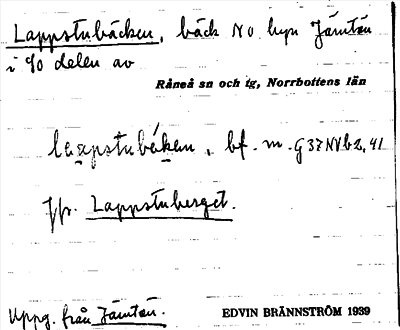 Lappstubäcken, bäck NO byn Jämtön
i SO delen av
Råneå sn och tg, Norrbottens län
lapstubéken, bf. m. G37NVb2,41
Jfr. Lappstuberget.
Uppg. från Jämtön.
EDVIN BRÄNNSTRÖM 1939